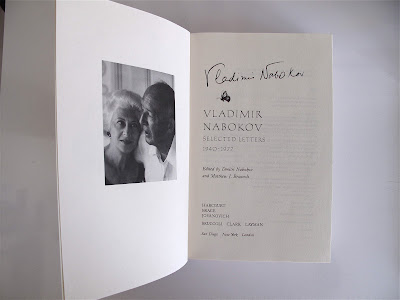 Vladimir Nabokov
VLADIMIR
NABOKOV
SELECTED LETTERS
1940-1977
Edited by Dmitri Nabokov
and Matthew J. Bruccoli
HARCOURT
BRACE
JOVANOVICH
BRUCCOLI CLARK LAYMAN
San Diego New York London